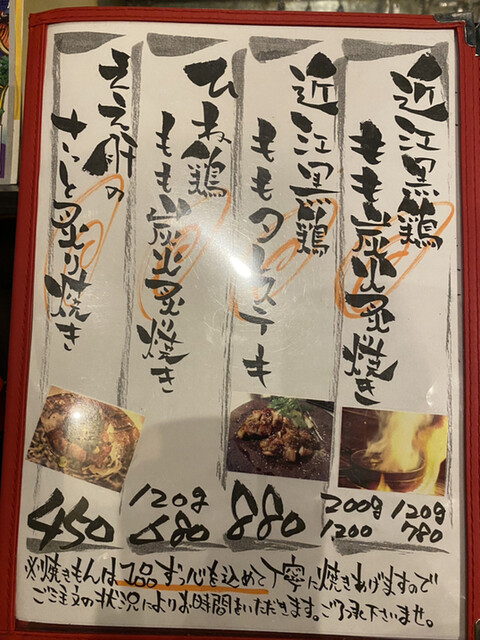 近江黒鶏
もも炭火炙焼き
200g 120g
1200 780
近江黒鶏
ももタレステーキ
880
ひね鶏
もも炭火炙焼き
120g
680
ええ肝の
さっと炙り焼き
450
※焼きもんは1品ずつ心を込めて丁寧に焼きあげますので
ご注文の状況によりお時間をいただきます。ご了承下さいませ。